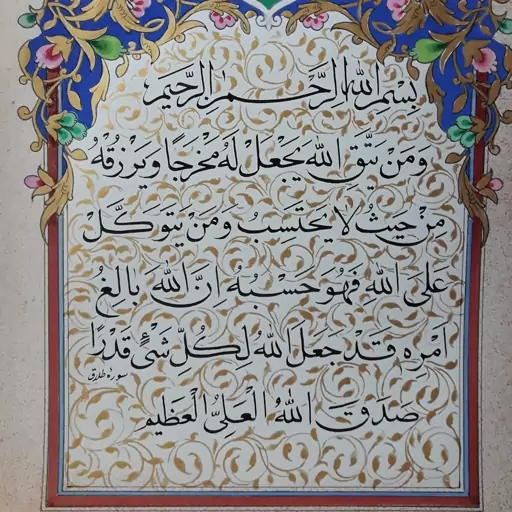 بِسْمِ اللهِ الرَّحْمٰنِ الرَّحیمِ
وَمَنْ یَتَّقِ اللهَ یَجْعَلْ لَهُ مَخْرَجًا وَیَرْزُقْهُ
مِنْ حَیْثُ لَا یَحْتَسِبُ وَمَنْ یَتَوَکَّلْ
عَلَی اللهِ فَهُوَ حَسْبُهُ اِنَّ اللهَ بَالِغُ
اَمْرِهِ قَدْ جَعَلَ اللهُ لِکُلِّ شَیْءٍ قَدْرًا
سوره طلاق
صَدَقَ اللهُ الْعَلِیُّ الْعَظیم